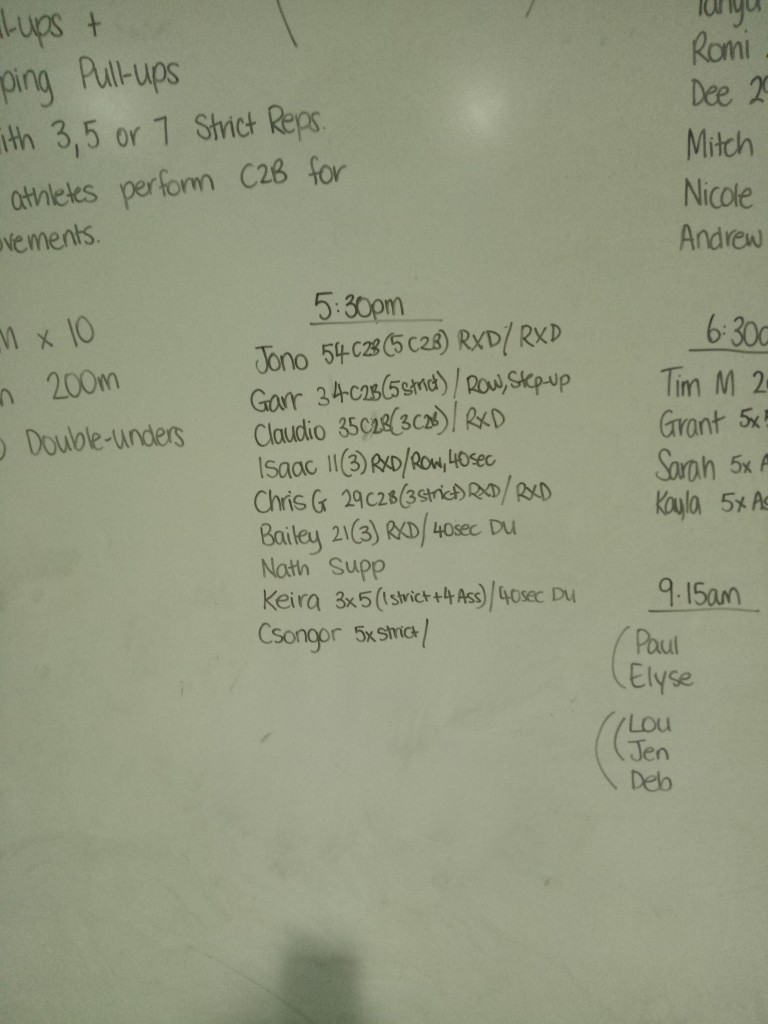 ll-ups +
ping Pull-ups
ith 3, 5 or 7 Strict Reps.
athletes perform C2B for
ovements.
M x 10
200m
Double-unders
5:30pm
Jono 54 C2B (5 C2B) RXD / RXD
Garr 34 C2B (5 strict) / Row, Step-up
Claudio 35 C2B (3 C2B) / RXD
Isaac 11 (3) RXD / Row, 40sec
Chris G 29 C2B (3 strict) RXD / RXD
Bailey 21 (3) RXD / 40sec DU
Nath Supp
Keira 3x5 (1 strict + 4 Ass) / 40sec DU
Csongor 5x strict /
Tanya
Romi
Dee 29
Mitch
Nicole
Andrew
6:30a
Tim M 2
Grant 5x5
Sarah 5x A
Kayla 5x As
9.15am
Paul
Elyse
Lou
Jen
Deb